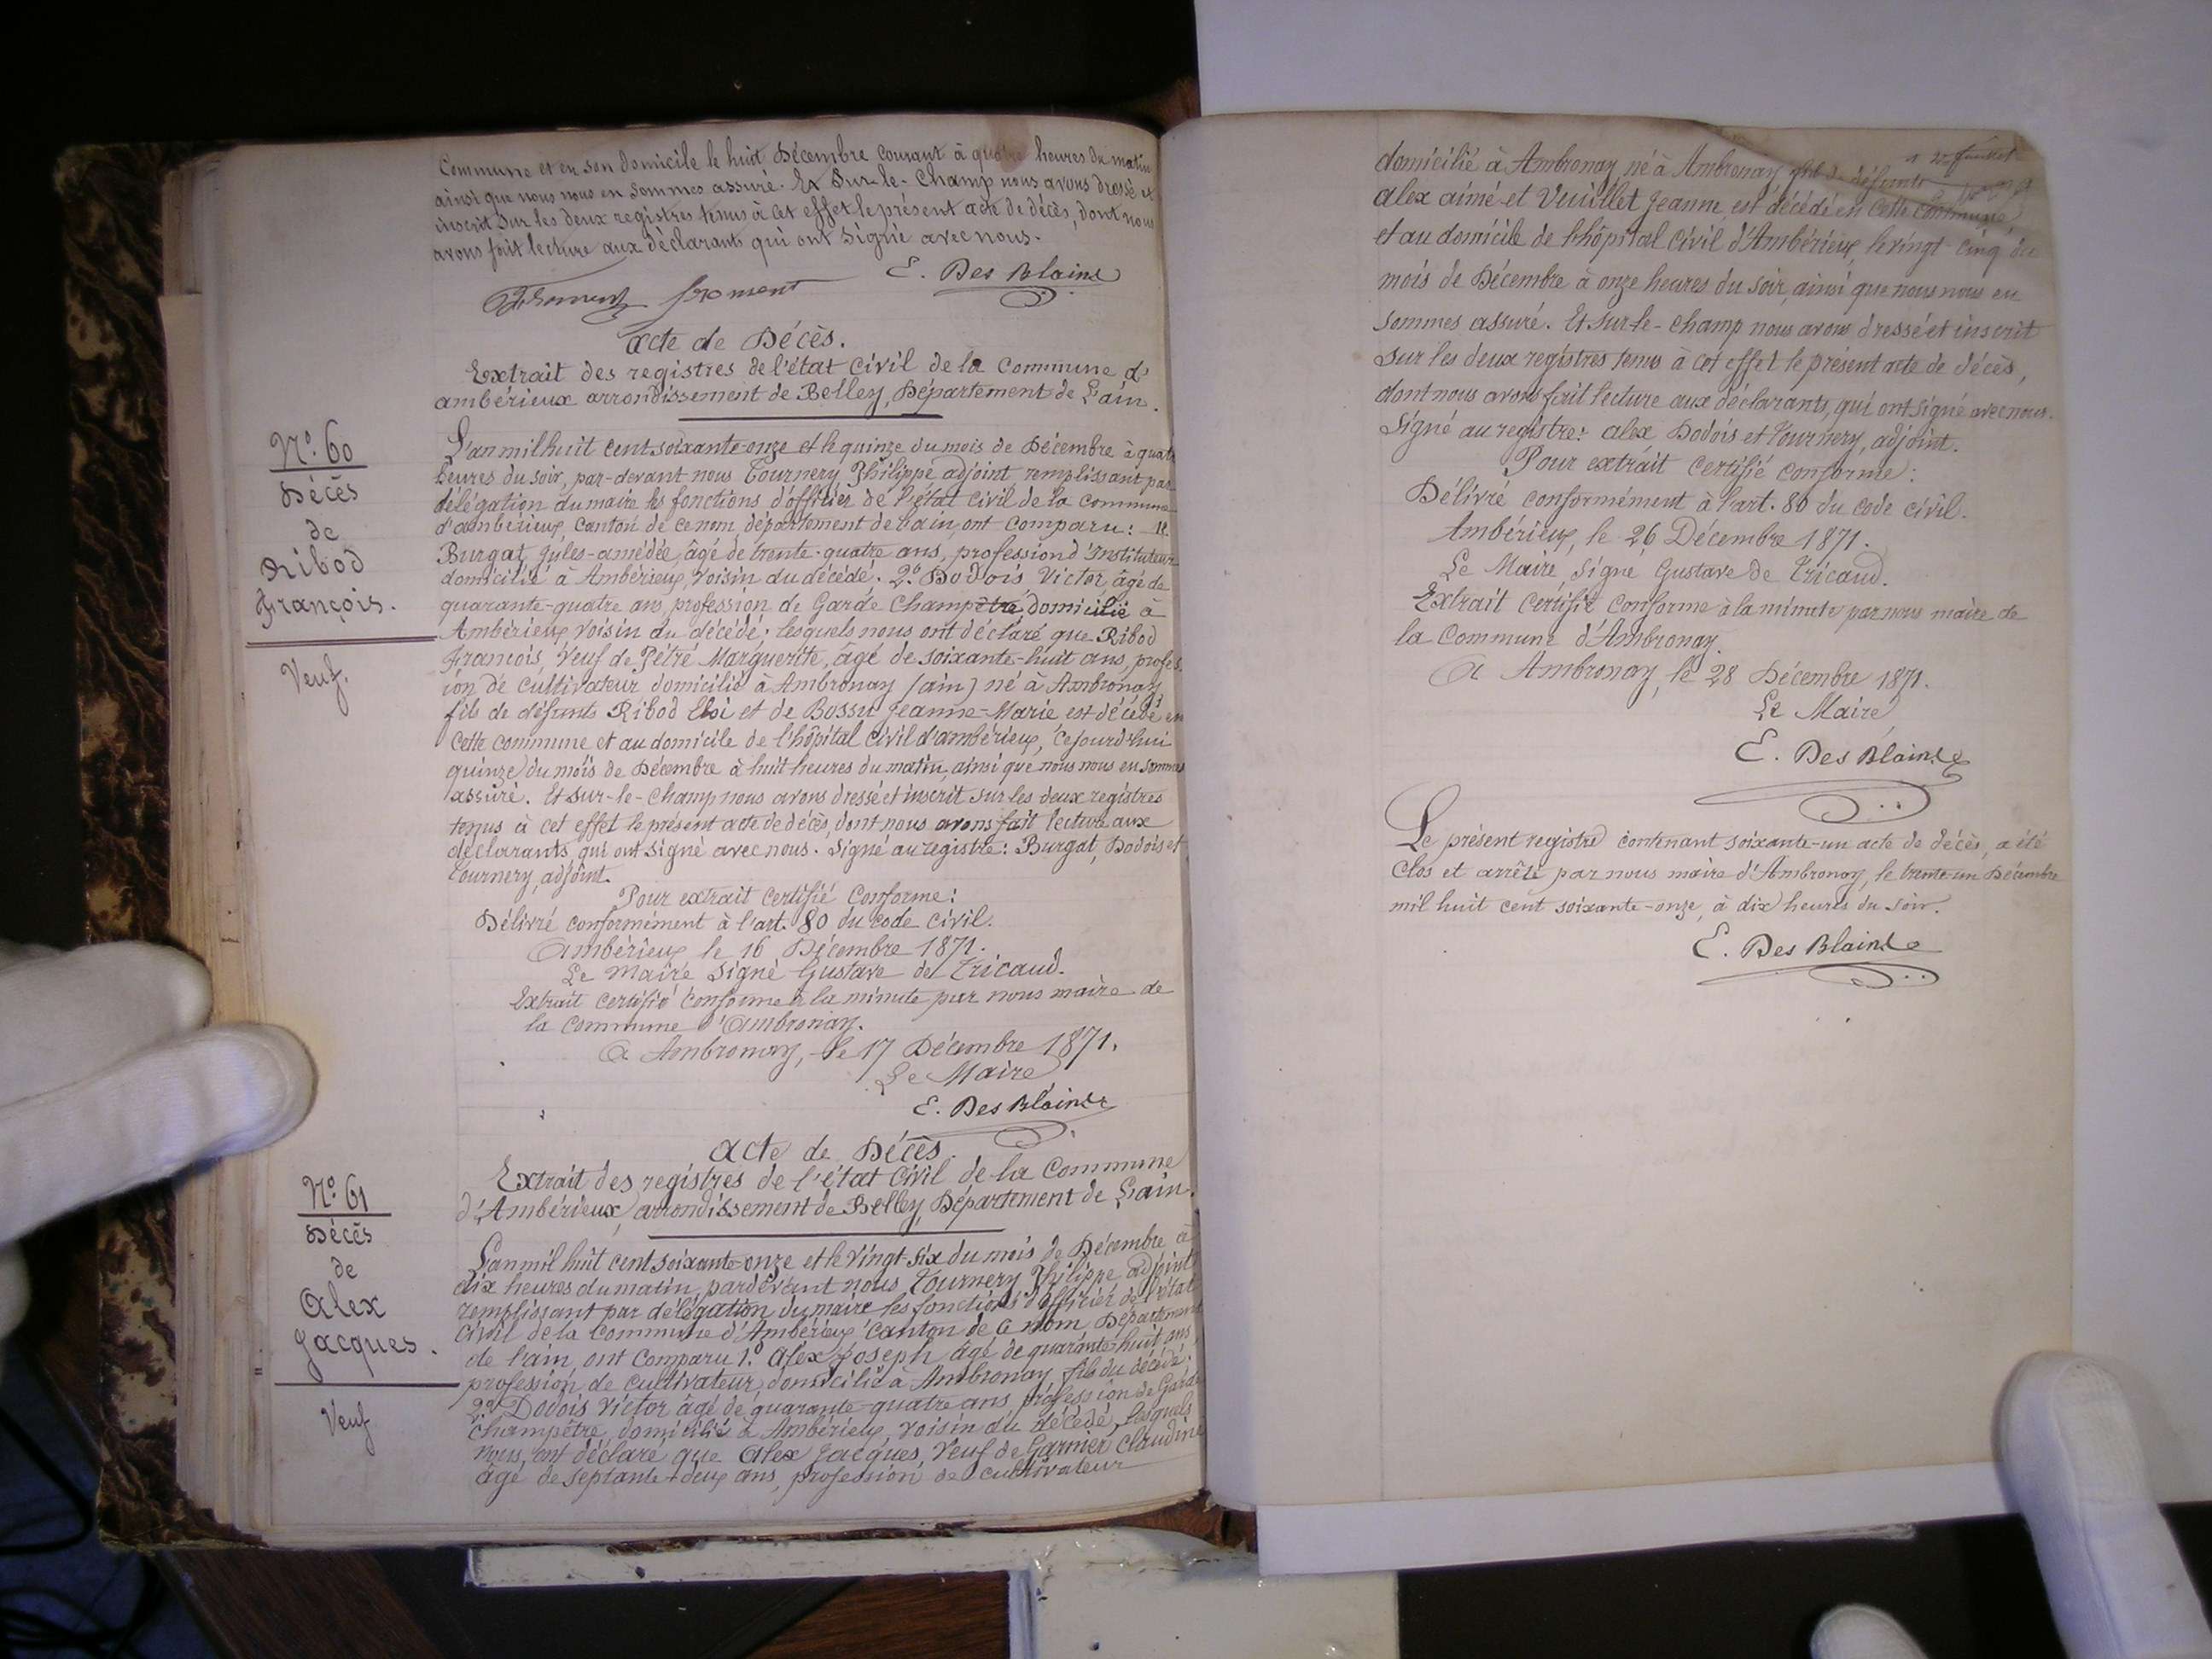 Commune et en son domicile le huit Décembre courant à quatre heures du matin
ainsi que nous nous en sommes assuré. Et Sur-le-Champ nous avons dressé et
inscrit sur les deux registres tenus à cet effet le présent acte de décès, dont nous
avons fait lecture aux déclarants qui ont signé avec nous.
froment E. Des Blains
Acte de Décès.
Extrait des registres de l'état civil de la Commune d'
ambérieux arrondissement de Belley, Département de L'ain.
N.º 60
Décès
de
Ribod
François.
Veuf.
L'an mil huit cent soixante-onze et le quinze du mois de Décembre à quatre
heures du soir, par-devant nous Tournery Philippe adjoint, remplissant par
délégation du maire les fonctions d'officier de l'état civil de la commune
d'ambérieux, canton de ce nom, département de l'ain, ont comparu: 1º
Burgat Jules-amédée, âgé de trente-quatre ans, profession d'instituteur
domicilié à Ambérieux, voisin du décédé. 2º Dodois Victor, âgé de
quarante-quatre ans, profession de Garde Champêtre, domicilié à
Ambérieux voisin du décédé; lesquels nous ont déclaré que Ribod
François, Veuf de Pétré Marguerite, âgé de soixante-huit ans, profes
ion de Cultivateur domicilié à Ambronay (ain) né à Ambronay
fils de défunts Ribod Eloi et de Bossu Jeanne-Marie, est décédé en
cette commune et au domicile de l'hôpital civil d'ambérieux, cejourd'hui
quinze du mois de Décembre à huit heures du matin, ainsi que nous nous en sommes
assuré. Et sur-le-champ nous avons dressé et inscrit sur les deux registres
tenus à cet effet le présent acte de décès, dont nous avons fait lecture aux
déclarants, qui ont signé avec nous. Signé au registre: Burgat, Dodois et
Tournery, adjoint.
Pour extrait certifié Conforme:
Délivré conformément à l'art. 80 du code civil.
Ambérieux, le 16 Décembre 1871.
Le Maire Signé Gustave de Tricaud.
Extrait certifié conforme à la minute par nous maire de
la Commune d'Ambronay.
A Ambronay, le 17 Décembre 1871.
Le Maire
E. Des Blains
Acte de Décès
Extrait des registres de l'état Civil de la Commune
d'Ambérieux, arrondissement de Belley, Département de L'ain.
N.º 61
Décès
de
Alex
Jacques.
Veuf
L'an mil huit cent soixante-onze et le vingt-six du mois de Décembre à
dix heures du matin, pardevant nous Tournery Philippe adjoint
remplissant par délégation du maire les fonctions d'officier de l'état
civil de la Commune d'Ambérieux Canton de ce nom Département
de l'ain, ont comparu 1.º Alex Joseph âgé de quarante-huit ans
profession de cultivateur, domicilié à Ambronay, fils du décédé.
2º Dodois Victor âgé de quarante-quatre ans, profession de Garde
Champêtre, domicilié à Ambérieux, voisin du décédé, lesquels
nous ont déclaré que Alex Jacques, Veuf de Garnier Claudine
âgé de septante-deux ans, profession de cultivateur
domicilié à Ambronay, né à Ambronay, fils de défunts
alex aimé et Veuillet Jeanne, est décédé en cette Commune
et au domicile de l'hôpital civil d'Ambérieux, le vingt-cinq du
mois de Décembre à onze heures du soir, ainsi que nous nous en
sommes assuré. Et sur-le-champ nous avons dressé et inscrit
sur les deux registres tenus à cet effet le présent acte de décès,
dont nous avons fait lecture aux déclarants, qui ont signé avec nous.
Signé au registre: alex Dodois et Tournery, adjoint.
Pour extrait certifié conforme:
Délivré conformément à l'art. 80 du code civil.
Ambérieux, le 26 Décembre 1871.
Le Maire, signé Gustave de Tricaud.
Extrait certifié conforme à la minute par nous maire de
la Commune d'Ambronay.
A Ambronay, le 28 Décembre 1871.
Le Maire
E. Des Blains
Le présent registre contenant soixante-un acte de décès, a été
clos et arrêté par nous maire d'Ambronay, le trente-un Décembre
mil huit cent soixante-onze, à dix heures du soir.
E. Des Blains